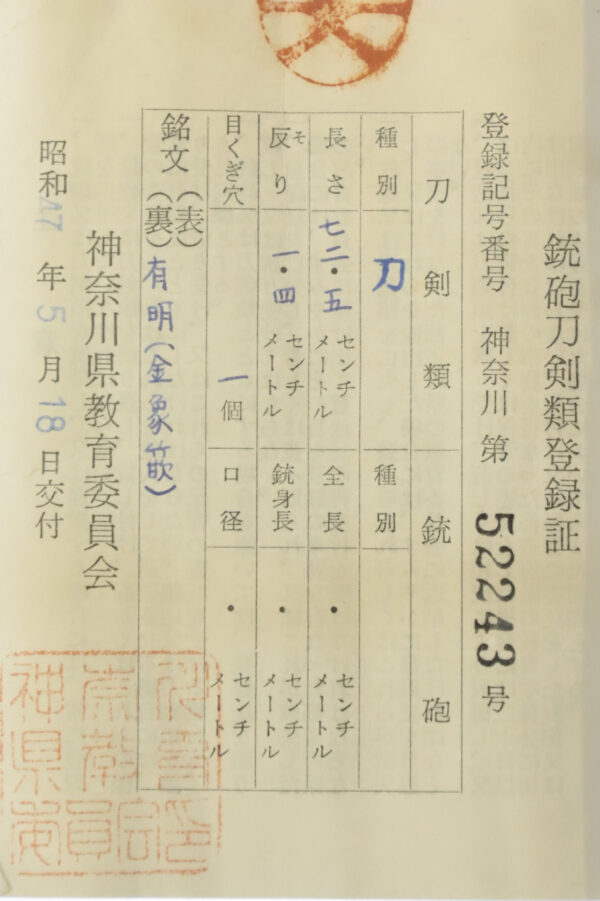 銃砲刀剣類登録証
登録記号番号 神奈川 第 52243 号
刀剣類 銃砲
種別 刀 種別
長さ 七二・五 センチメートル 全長 ・ センチメートル
反り そ 一・四 センチメートル 銃身長 ・ センチメートル
目くぎ穴 一個 口径 ・ センチメートル
銘文 (表)
(裏) 有明(金象嵌)
神奈川県教育委員会
昭和 47 年 5 月 18 日交付